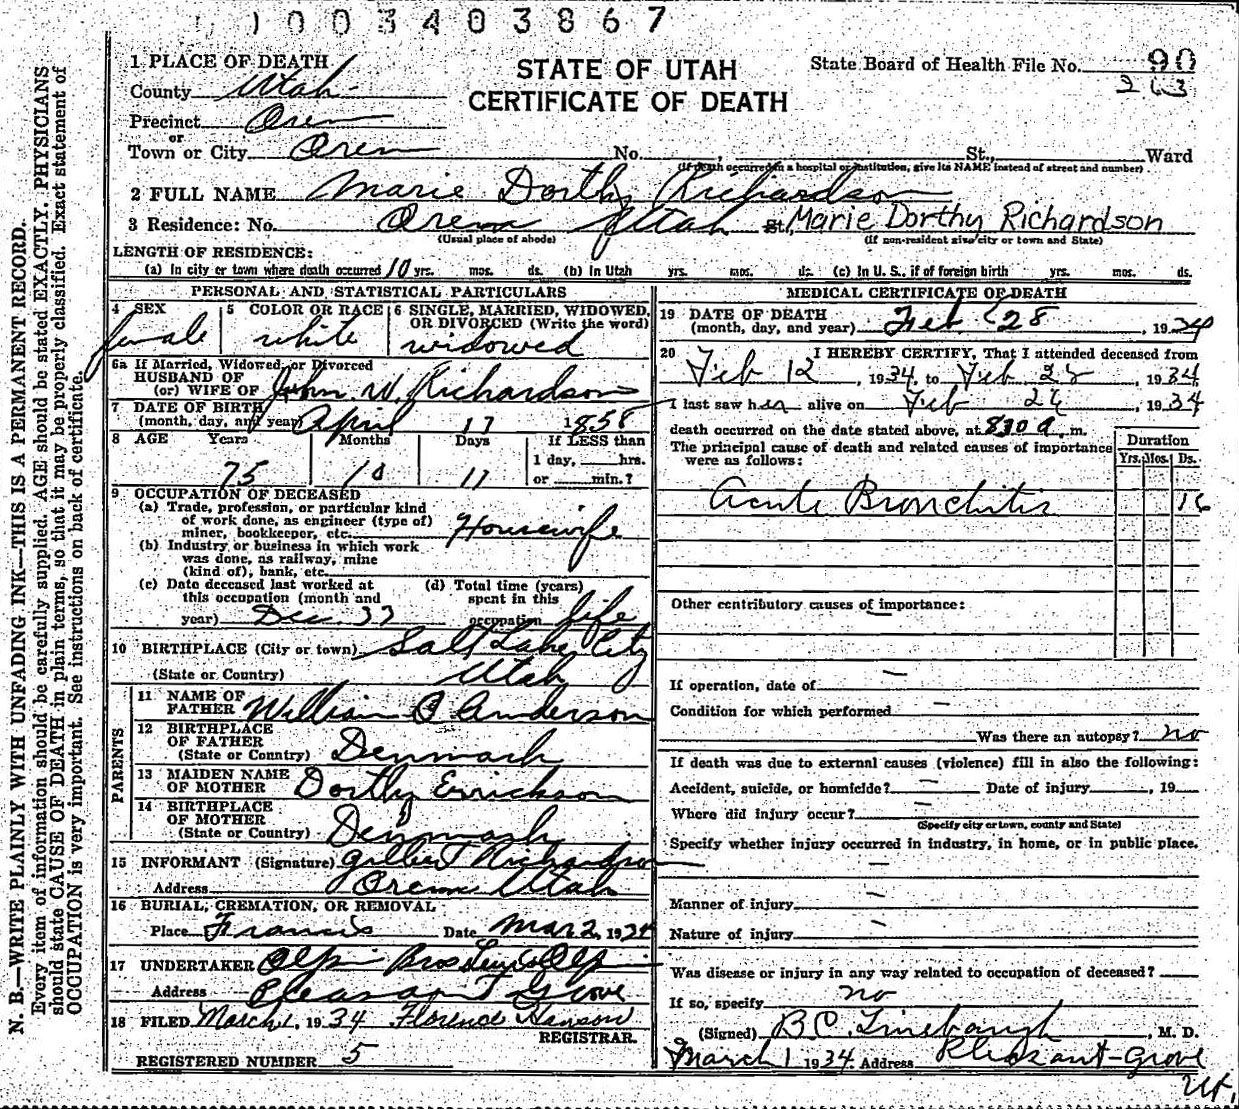 1003403867
1 PLACE OF DEATH
STATE OF UTAH
CERTIFICATE OF DEATH
State Board of Health File No. 90
263
County Utah
Precinct Orem
or
Town or City Orem No. St., Ward
(If death occurred in a hospital or institution, give its NAME instead of street and number)
2 FULL NAME Marie Dorthy Richardson
3 Residence: No. Orem Utah St. Marie Dorthy Richardson
(Usual place of abode) (If non-resident give city or town and State)
LENGTH OF RESIDENCE:
(a) In city or town where death occurred 10 yrs. mos. ds. (b) In Utah yrs. mos. ds. (c) In U. S., if of foreign birth yrs. mos. ds.
PERSONAL AND STATISTICAL PARTICULARS
4 SEX 5 COLOR OR RACE 6 SINGLE, MARRIED, WIDOWED, OR DIVORCED (Write the word)
female white widowed
6a If Married, Widowed, or Divorced
HUSBAND OF
(or) WIFE OF John W. Richardson
7 DATE OF BIRTH
(month, day, and year) April 17 1858
8 AGE Years Months Days If LESS than
75 10 11 1 day, hrs.
or min.?
9 OCCUPATION OF DECEASED
(a) Trade, profession, or particular kind
of work done, as engineer (type of)
miner, bookkeeper, etc. Housewife
(b) Industry or business in which work
was done, as railway, mine
(kind of), bank, etc.
(c) Date deceased last worked at (d) Total time (years)
this occupation (month and spent in this
year) Dec. 33 occupation life
10 BIRTHPLACE (City or town) Salt Lake City
(State or Country) Utah
PARENTS
11 NAME OF
FATHER William O Anderson
12 BIRTHPLACE
OF FATHER
(State or Country) Denmark
13 MAIDEN NAME
OF MOTHER Dorthy Errickson
14 BIRTHPLACE
OF MOTHER
(State or Country) Denmark
15 INFORMANT (Signature) Gilbert Richardson
Address Orem Utah
16 BURIAL, CREMATION, OR REMOVAL
Place Francis Date Mar 2, 1934
17 UNDERTAKER Olpin Bros
Address Pleasant Grove
18 FILED March 1, 1934 Florence Hanson
REGISTRAR.
REGISTERED NUMBER 5
MEDICAL CERTIFICATE OF DEATH
19 DATE OF DEATH
(month, day, and year) Feb 28, 1934
20 I HEREBY CERTIFY, That I attended deceased from
Feb 12, 1934, to Feb 28, 1934
I last saw her alive on Feb 26, 1934
death occurred on the date stated above, at 830 a. m.
The principal cause of death and related causes of importance
were as follows:
Duration
Yrs. Mos. Ds.
Acute Bronchitis 16
Other contributory causes of importance:
If operation, date of
Condition for which performed
Was there an autopsy? no
If death was due to external causes (violence) fill in also the following:
Accident, suicide, or homicide? Date of injury, 19
Where did injury occur?
(Specify city or town, county and State)
Specify whether injury occurred in industry, in home, or in public place.
Manner of injury
Nature of injury
Was disease or injury in any way related to occupation of deceased?
If so, specify no
(Signed) BC. Linebaugh, M. D.
March 1 1934. Address Pleasant-Grove
Ut,
N. B.—WRITE PLAINLY WITH UNFADING INK—THIS IS A PERMANENT RECORD.
Every item of information should be carefully supplied. AGE should be stated EXACTLY. PHYSICIANS
should state CAUSE OF DEATH in plain terms, so that it may be properly classified. Exact statement of
OCCUPATION is very important. See instructions on back of certificate.